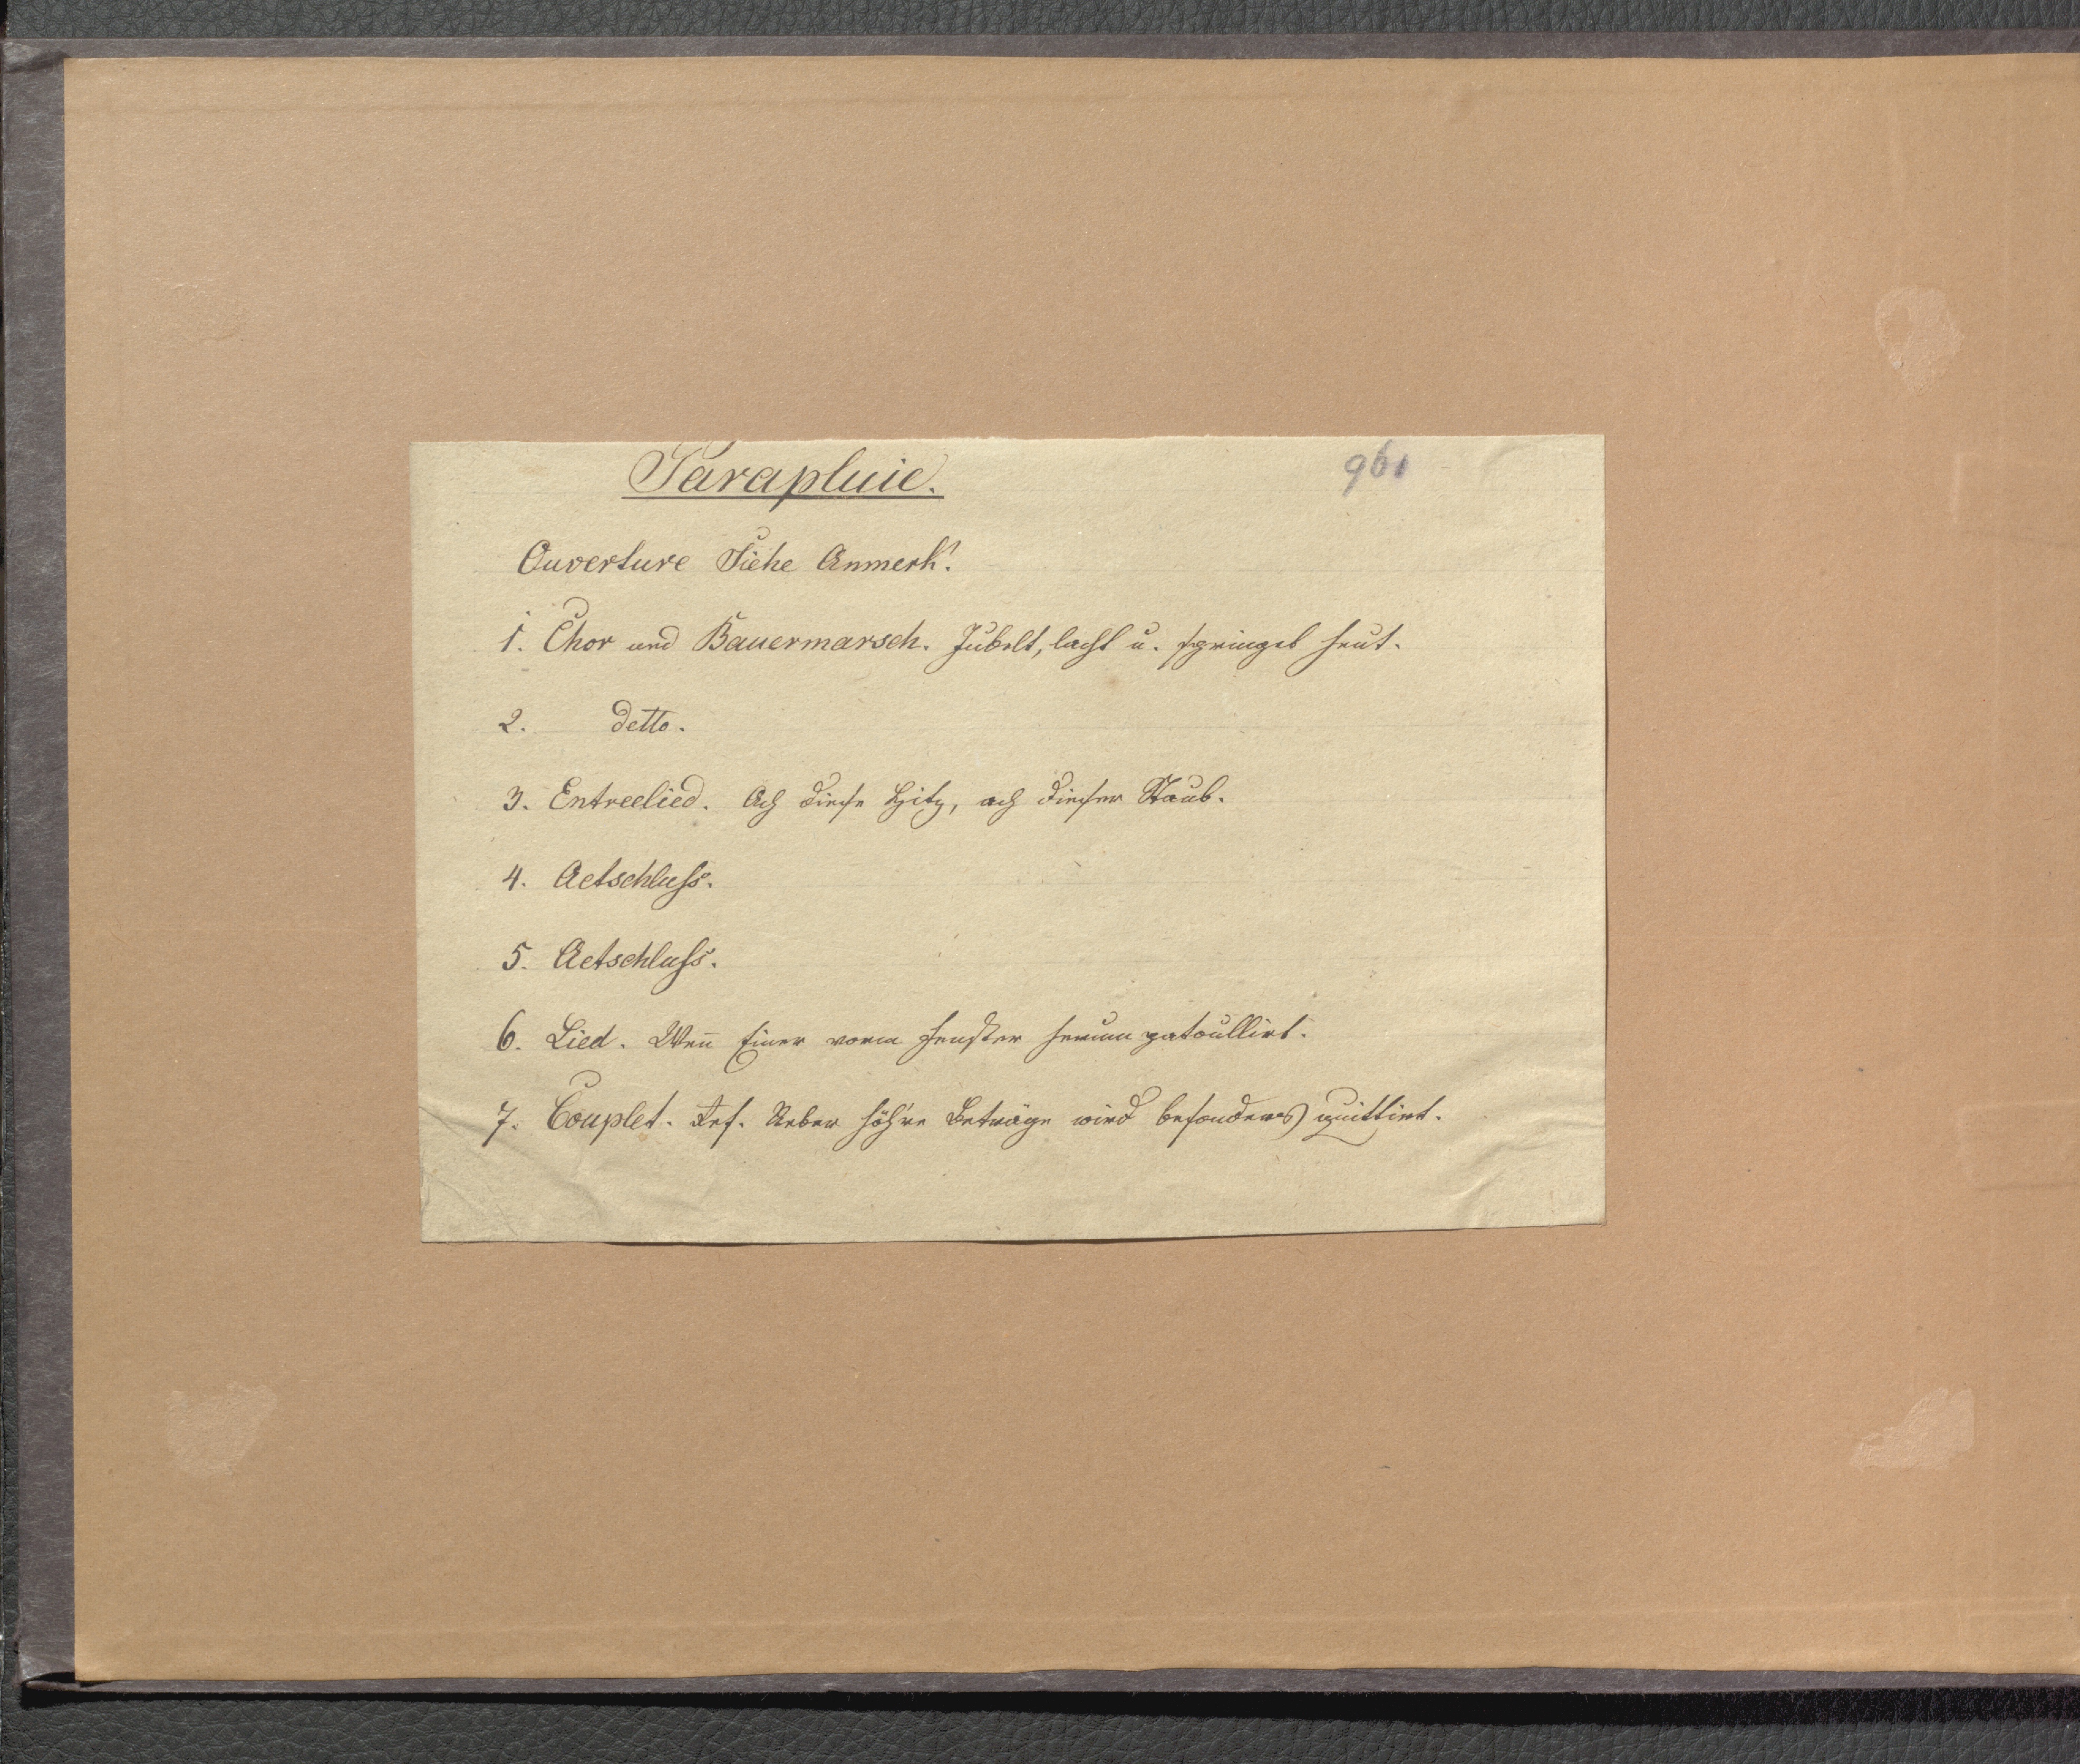 Parapluie.
961
Ouverture Siehe Anmerk!
1. Chor und Bauermarsch. Jubelt, lacht u. springet heut.
2. detto.
3. Entreelied. Ach diese Hitz, ach dieser Staub.
4. Actschluß.
5. Actschluß.
6. Lied. Weñ Einer vorm Fenster herum patoullirt.
7. Couplet. Ref. Ueber höh're Beträge wird besonders quittirt.